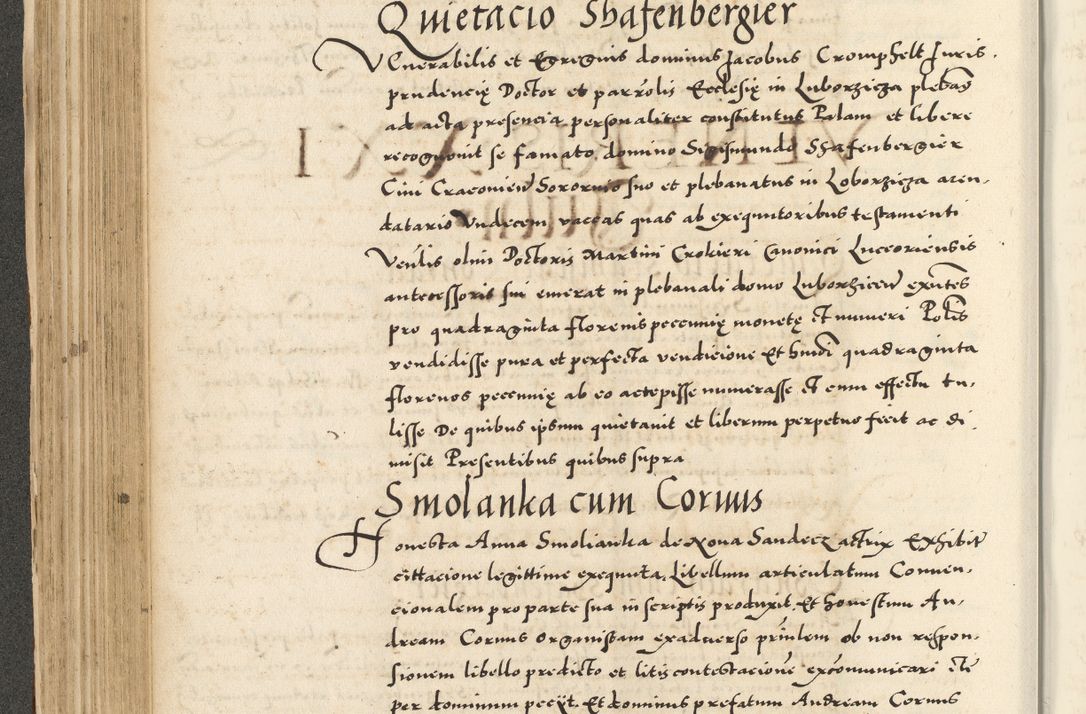 Quietacio Shafenbergier
VEnerabilis et Egregius dominus Jacobus Cromphelt Juris
prudencię Doctor et parrolis Ecclesię in Luborzicza plebanus
ad acta presencia personaliter constitutus Palam et libere
recognouit se famato domino Sigismundo Shafenbergier
Ciui Cracouien Sororio suo et plebanatus in Loborzicza aren-
datario Vndecem vaccas quas ab exequutoribus testamenti
Venlis olim Doctoris Martini Crokieri Canonici Luceoriensis
antecessoris sui emerat in plebanali domo Luborzicen exntes
pro quadraginta florenis pecunię monetę et numeri Polis
vendidisse pura et perfecta vendicione Et hmdi quadraginta
florenos pecunię ab eo accepisse numerasse et cum effectu tu-
lisse De quibus ipsum quietauit et liberum perpetuo fecit ac di
misit Presentibus quibus supra
Smolanka cum Coruus
Honesta Anna Smolianka de Noua Sandecz actrix Exhibit
cittacione legittime exequuta, Libellum articulatum Conuen-
cionalem pro parte sua in scriptis produxit. Et honestum An-
dream Coruus Organistam exaduerso prnlem ob non respon-
sionem libello predicto et litis contestacione excomunicari etc
per dominum pecyt. Et dominus prefatum Andream Coruus